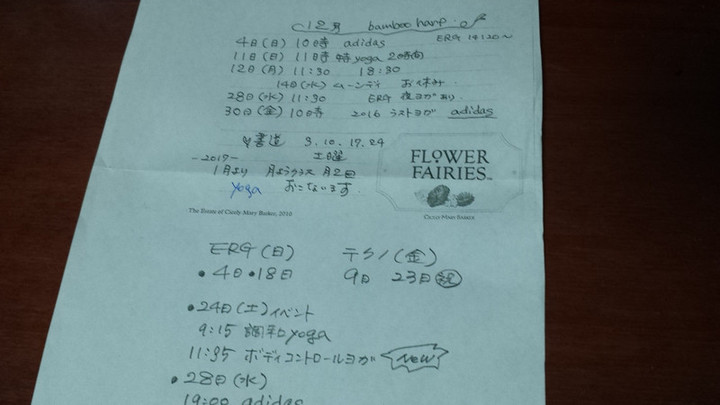 12月 bamboo harp
4日(日) 10時 adidas ERG 14:20~
11日(日) 11時 yoga 2時間
12日(月) 11:30 18:30
14日(水) ムーンデイ お休み
28日(水) 11:30 ERG 夜ヨガあり
30日(金) 10時 2016 ラストヨガ adidas
書道 3.10.17.24
土曜
-2017-
1月より 月ようクラス 月2回
yoga おこないます
FLOWER
FAIRIES™
CICELY MARY BARKER
The Estate of Cicely Mary Barker, 2010
ERG (日) テクノ(金)
•4日•18日 9日 23日(祝)
•24日(土)イベント
9:15 調和yoga
11:35 ボディコントロールヨガ New
•28日(水)
19:00 adidas